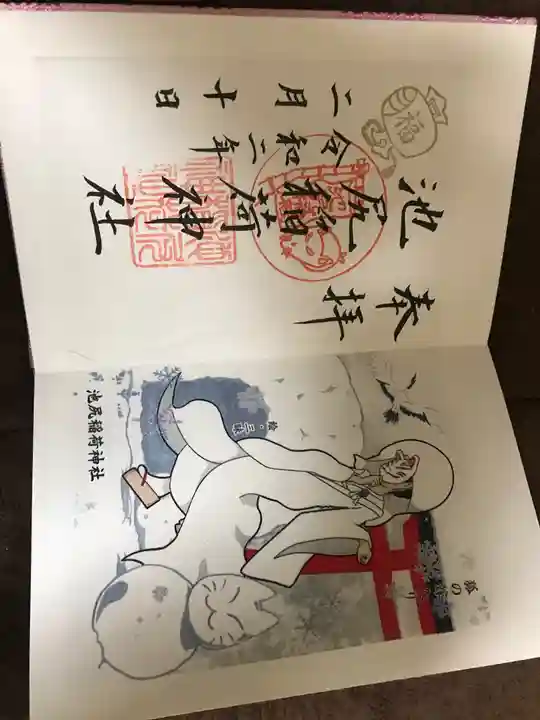 奉拝
池尻稲荷神社
令和二年
二月十日
福
狐の
絵・
池尻稲荷神社